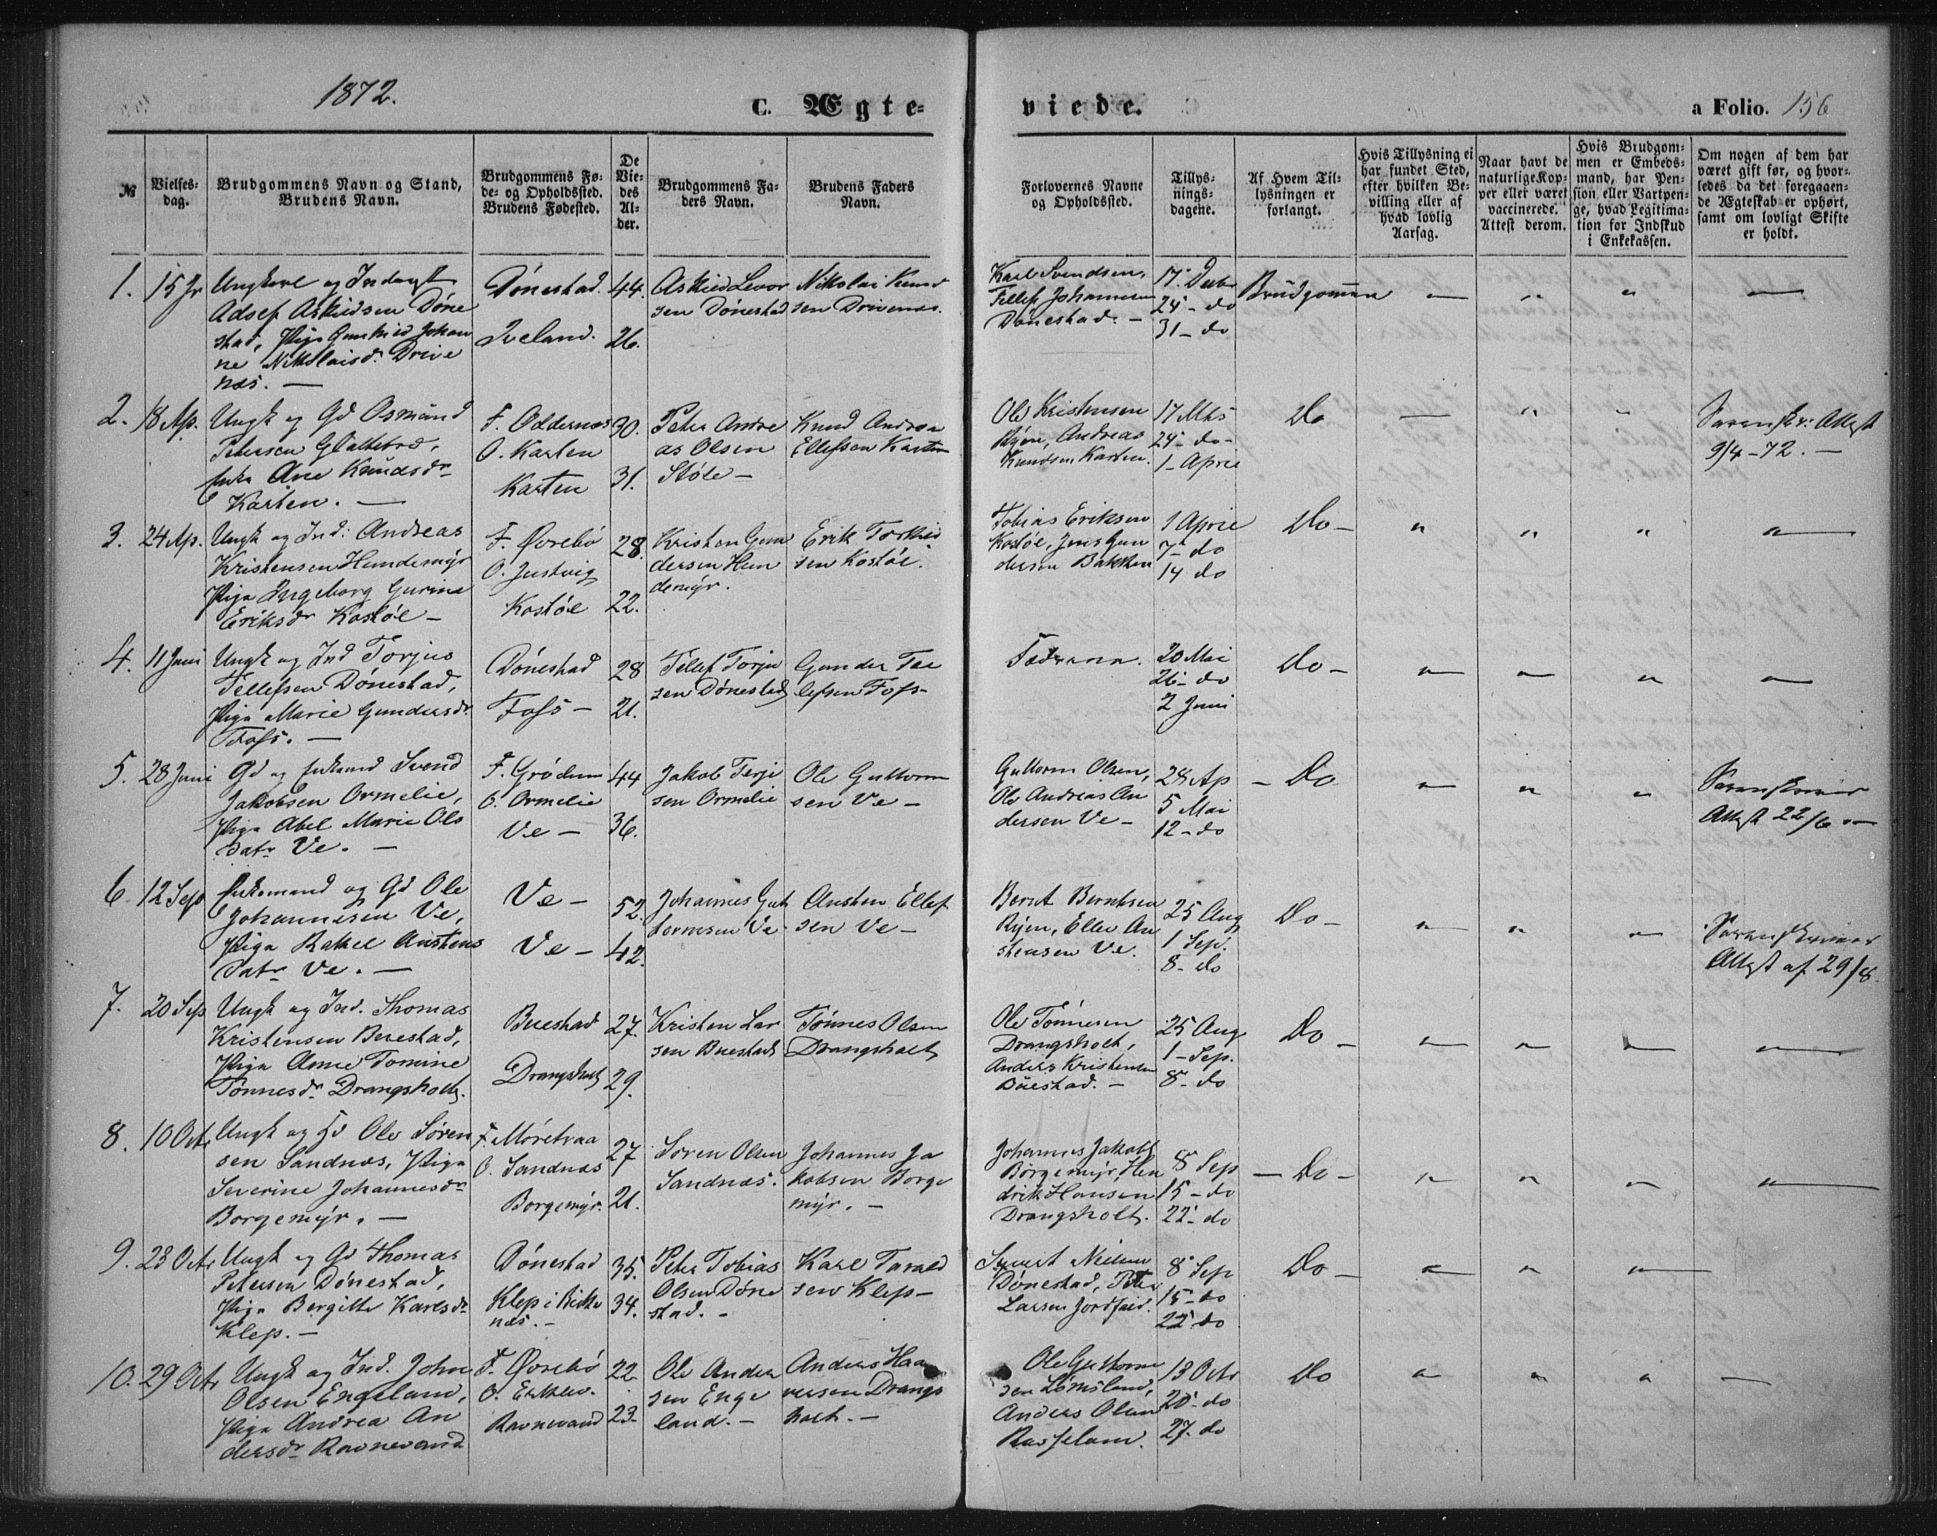 1872.
C. Ægte-
viede.
a Folio. 156
№
Vielses-
dag.
Brudgommens Navn og Stand,
Brudens Navn.
Brudgommens Fø-
de- og Opholdssted.
Brudens Fødested.
De
Vie-
des
Al-
der.
Brudgommens Fa-
ders Navn.
Brudens Faders
Navn.
Forlovernes Navne
og Opholdssted.
Tillys-
nings-
dagene.
Af Hvem Til-
lysningen er
forlangt.
Hvis Tillysning ei
har fundet Sted,
efter hvilken Be-
villing eller af
hvad lovlig
Aarsag.
Naar havt de
naturlige Kop-
per eller været
vaccinerede.
Attest derom.
Hvis Brudgom-
men er Embeds-
mand, har Pen-
sion eller Vartpen-
ge, hvad Legitima-
tion for Indskud
i Enkekassen.
Om nogen af dem har
været gift før, og hvor-
ledes da det foregaaen-
de Ægteskab er ophørt,
samt om lovligt Skifte
er holdt.
1.
15 Jr
Ungkarl og Inderst
Adsef Askildsen Døne
stad, Pige Gunhild Johan
ne Nikolaisd. Drive
nes. —
Dønestad.
Iveland.
44.
26.
Askild Levor
sen Dønestad
Nikolai Knud
sen Drivenes.
Karl Svendsen,
Tellef Johannesen
Dønestad. —
17. Decbr
24 - do
31 - do
Brudgommen
2.
18 Ap.
Ungk og Gd Osmund
Petersen Glattebræ,
Enke Ane Knudsdr
Karten. —
F. Oddernes
O. Karten
Karten
30.
31.
Peter Andre
as Olsen
Støle —
Knud Andrea
Ellefsen Karten
Ole Kristensen
Ryen, Andreas
Knudsen Karten.
17 Mts
24 - do -
1 - April
Do
Attest
9/4 - 72. —
3.
24 Ap.
Ungk og Ind: Andreas
Kristensen Hundemyr
Pige Ingeborg Gurine
Eriksdr Kostøl —
F. Øvrebø
O. Justvig
Kostøl
28.
22.
Kristen Gun
dersen Hun
demyr.
Erik Torkild
sen Kostøl.
Tobias Eriksen
Kostøl, Jens Gun
dersen Bakken
1 April
7 - do
14 do
Do -
4.
11 Juni
Ungk og Ind Torjus
Tellefsen Dønestad,
Pige Marie Gundersdr
Foss. —
Dønestad
Foss —
28
21.
Tellef Torju
sen Dønestad
Gunder Tel
lefsen Foss -
Fædrene.
20 Mai
26 - do
2 Juni
Do -
5.
28 Juni
Gd og Enkemd Svend
Jakobsen Ormelie,
Pige Abel Marie Ols
datr Ve. —
F. Grødum
O. Ormelie
Ve —
44
36.
Jakob Terje
sen Ormelie
Ole Guttorm
sen Ve —
Guttorm Olsen,
Ole Andreas An
dersen Ve —
28 Ap
5 Mai
12 - do
- Do
Attest 22/6
6.
12 Sep
Enkemand og Gd Ole
Johannesen Ve,
Pige Rakel Austens
datr Ve. —
Ve —
Ve —
52.
42.
Johannes Gut
tormsen Ve
Austen Ellef
sen Ve —
Bernt Berntsen
Ryen, Ellev Au
stensen Ve.
25 Aug
1 Sep.
8 - do
Do -
Attest af 29/8.
7.
20 Sep
Ungk og Ind. Thomas
Kristensen Buestad,
Pige Anne Tomine
Tønnesdr Drangsholt.
Buestad
Drangsholt
27.
29.
Kristen Lar
sen Buestad
Tønnes Olsen
Drangsholt
Ole Tønnesen
Drangsholt,
Anders Kristensen
Buestad. —
25 Aug
1 - Sep.
8 - do
Do -
8.
10 Octr
Ungk og Gd Ole Søren
sen Sandnæs, Pige
Severine Johannesdr
Borgemyr. —
F. Moretvaa
O. Sandnæs
Borgemyr.
27
21.
Søren Olsen
Sandnæs.
Johannes Ja
kobsen Borge
myr. —
Johannes Jakobs
Borgemyr, Hen
drik Hansen
Drangsholt.
8 Sep
15 - do
22 - do
- Do -
9.
23 Octr
Ungk og Gd Thomas
Petersen Dønestad,
Pige Bergitte Karlsdr
Klep. —
Dønestad
Klep i Birke
næs. —
35.
34.
Peter Tobias
Olsen Døne
stad. -
Karl Tarald
sen Klep —
Syvert Nielsen
Dønestad, Peter
Larsen Jordfald.
8 Sep
15 - do
22 - do
Do -
10.
29 Octr
Ungk og Ind. John
Olsen Engeland,
Pige Andrea An
dersdr Ravnevand
F. Øvrebø
Ravnevand
22.
23.
Ole Ander
sen Enge
land. —
Anders Haa
versen Drangs
holt. —
Ole Guttorm
sen Lømsland,
Anders Olsen
13 Octr
20 - do
27. do
Do